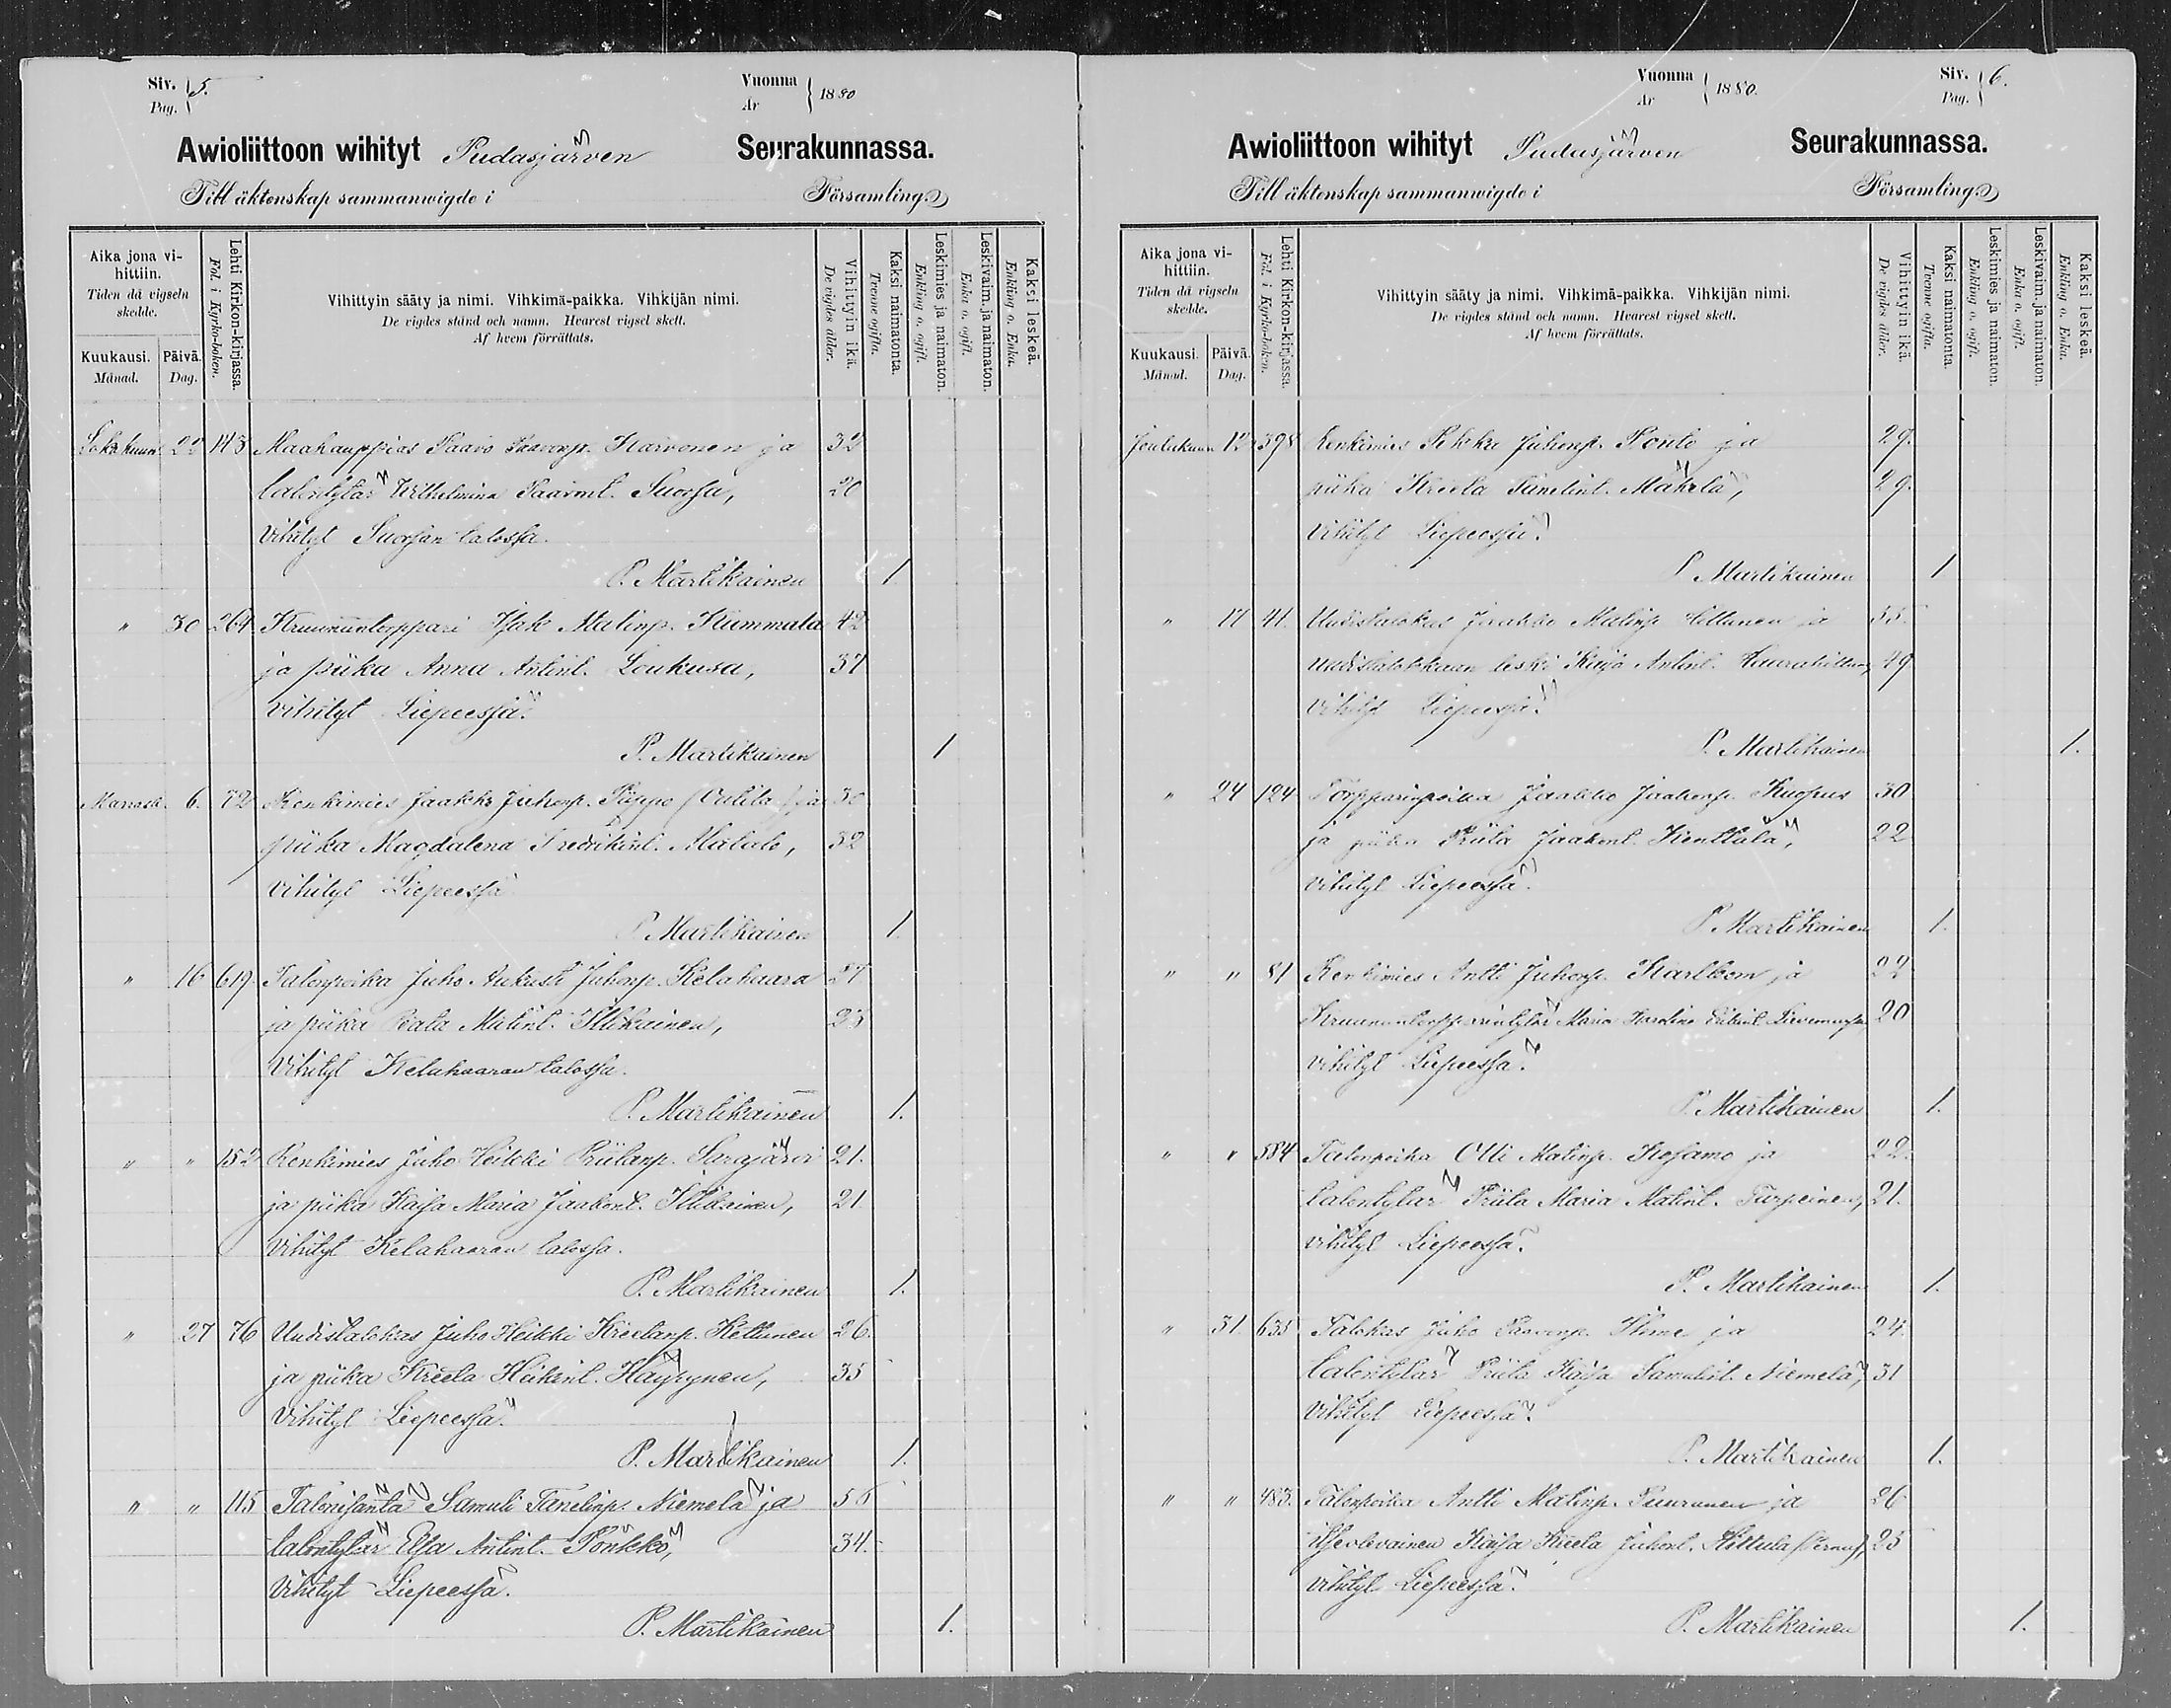 Siv. 5.
Pag.
Vuonna 1880
År
Awioliittoon wihityt Pudasjärven Seurakunnassa.
Till äktenskap sammanwigde i Församling.
Aika jona vihittiin.
Tiden då vigseln skedde.
Kuukausi. Månad.
Päivä. Dag.
Lehti Kirkon-kirjassa.
Fol. i Kyrko-boken.
Vihittyin sääty ja nimi. Vihkimä-paikka. Vihkijän nimi.
De vigdes stånd och namn. Hvarest vigsel skett.
Af hvem förrättats.
Vihittyin ikä.
De vigdes ålder.
Kaksi naimatonta.
Tvenne ogifta.
Leskimies ja naimaton.
Enkling o. ogift.
Leskivaim. ja naimaton.
Enka o. ogift.
Kaksi leskeä.
Enkling o. Enka.
Lokakuun 22 143 Maakauppias Paavo Paavonp. Karvonen ja 32
talontytär Wilhelmina Paavint. Suorsa, 20
vihityt Suorsan talossa.
P. Martikainen 1.
" 30 264 Kruununtorppari Isak Matinp. Kummala 42
ja piika Anna Antint. Loukusa, 37
vihityt Liepeessä.
P. Martikainen 1
Marrask. 6. 72 Renkimies Jaakko Juhonp. Piippo ja 30
piika Magdalena Fredrikint. Matalo, 32
vihityt Liepeessä
P. Martikainen 1.
" 16 619. Talonpoika Juho Aukusti Juhonp. Kelahaara 27
ja piika Matint. Illikainen, 23
vihityt Kelahaaran talossa.
P. Martikainen 1.
" " 152 Renkimies Juho Heikki Priitanp. Sarajärvi 21.
ja piika Kaisa Maria Jaakont. Illikainen, 21.
vihityt Kelahaaran talossa.
P. Martikainen 1.
" 27 76 Uudistalokas Juho Heikki Kreetanp. Kettunen 26.
ja piika Kreeta Heikint. Häyrynen, 35
vihityt Liepeessä.
P. Martikainen 1.
" " 115 Talonisäntä Samuli Tanelinp. Niemelä ja 56
talontytär Elsa Antint. Pönkkö, 34.
vihityt Liepeessä.
P. Martikainen 1.
Siv. 6.
Pag.
Vuonna 1880.
År
Awioliittoon wihityt Pudasjärven Seurakunnassa.
Till äktenskap sammanwigde i Församling.
Aika jona vihittiin.
Tiden då vigseln skedde.
Kuukausi. Månad.
Päivä. Dag.
Lehti Kirkon-kirjassa.
Fol. i Kyrko-boken.
Vihittyin sääty ja nimi. Vihkimä-paikka. Vihkijän nimi.
De vigdes stånd och namn. Hvarest vigsel skett.
Af hvem förrättats.
Vihittyin ikä.
De vigdes ålder.
Kaksi naimatonta.
Tvenne ogifta.
Leskimies ja naimaton.
Enkling o. ogift.
Leskivaim. ja naimaton.
Enka o. ogift.
Kaksi leskeä.
Enkling o. Enka.
Joulukuun 12 398 Renkimies Pekka Juhonp. ja 29.
piika Kreeta Tanelint. Mäkelä, 29.
vihityt Liepeessä.
P. Martikainen 1
" 17 41. Uudistalokas Jaakko Matinp. ja 55.
uudistalokkaan leski Kaisa Antint. 49
vihityt Liepeessä.
P. Martikainen 1.
" 24 124 Torpparinpoika Jaakko Jaakonp. Kuopus 30
ja piika Priita Jaakont. Kenttälä, 22
vihityt Liepeessä.
P. Martikainen 1.
" " 81 Renkimies Antti Juhonp. Karlbom ja 22
Kruununtorpparintytär Maria Karolina 20
vihityt Liepeessä.
P. Martikainen 1.
" " 584 Talonpoika Olli Matinp. Kosamo ja 22.
talontytär Priita Maria Matint. Turpeinen, 21.
vihityt Liepeessä.
P. Martikainen 1.
" 31. 635 Talokas Juho Paavonp. Ihme ja 24.
talontytär Priita Kaisa Samulint. Niemelä, 31
vihityt Liepeessä.
P. Martikainen 1.
" " 483. Talonpoika Antti Matinp. Puurunen ja 26
itseolevainen Kaisa Kreeta Juhont. 25
vihityt Liepeessä.
P. Martikainen 1.